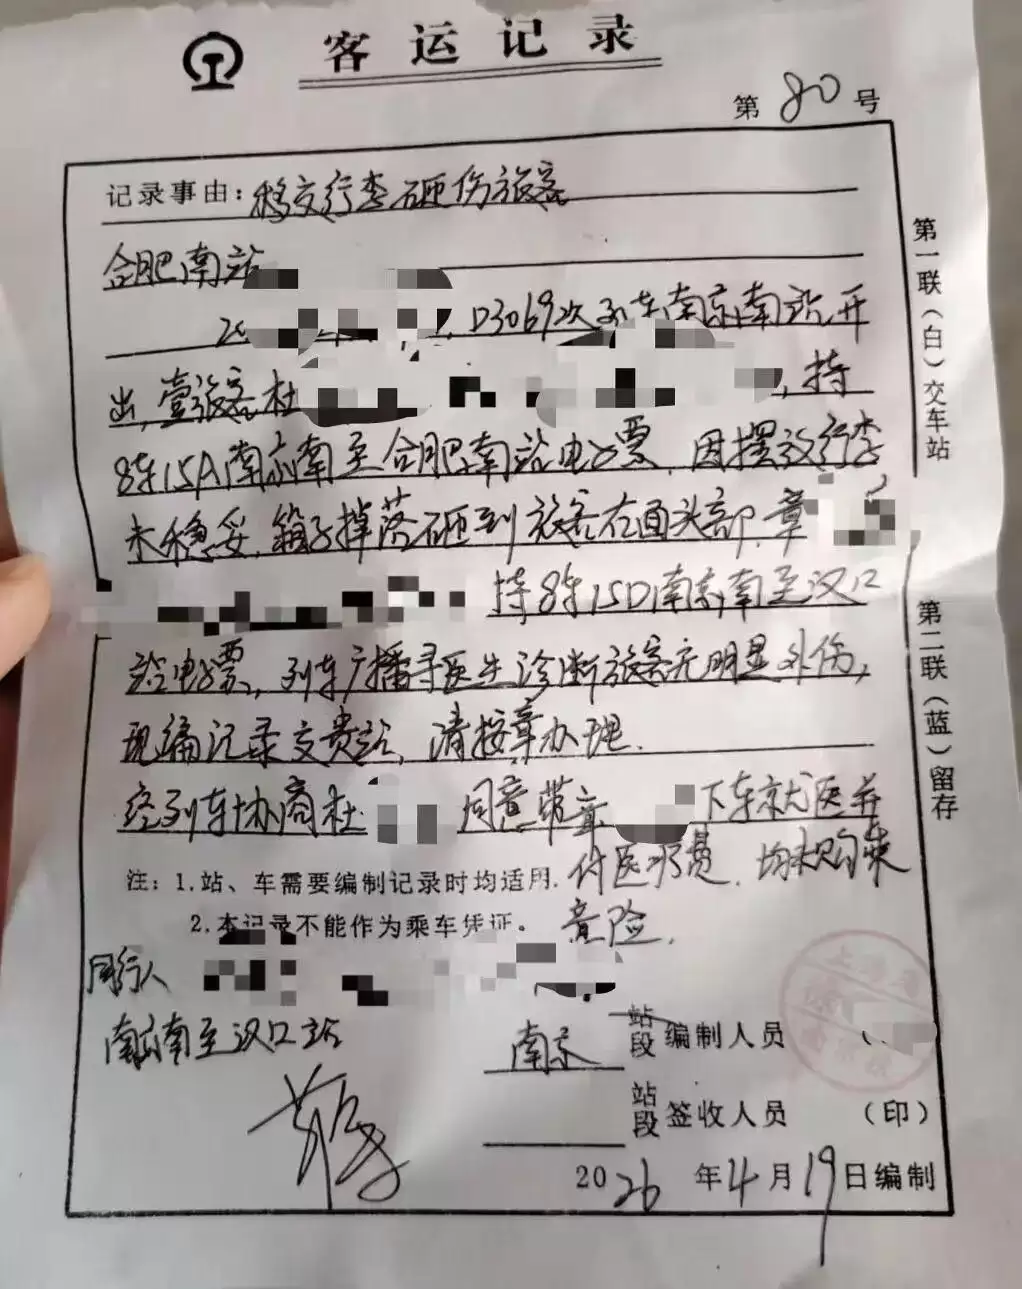 客运记录
第 80 号
记录事由：移交行李砸伤旅客
合肥南站
D3069次列车南京南站开
出，壹旅客杜 ，持
8车15A南京南至合肥南站电子票，因摆放行李
未稳妥，箱子掉落砸到旅客右面头部，章
持8车15D南京南至汉口
站电子票，列车广播寻医生诊断旅客无明显外伤，
现编记录交贵站，请按章办理.
经列车协商杜 同意带章 下车就医并
付医疗费，均未购乘
意险.
注：1.站、车需要编制记录时均适用.
2.本记录不能作为乘车凭证。
同行人
南京南至汉口站
南京 站段 编制人员
站段 签收人员 （印）
2026 年 4 月 19 日编制
第一联（白）交车站
第二联（蓝）留存